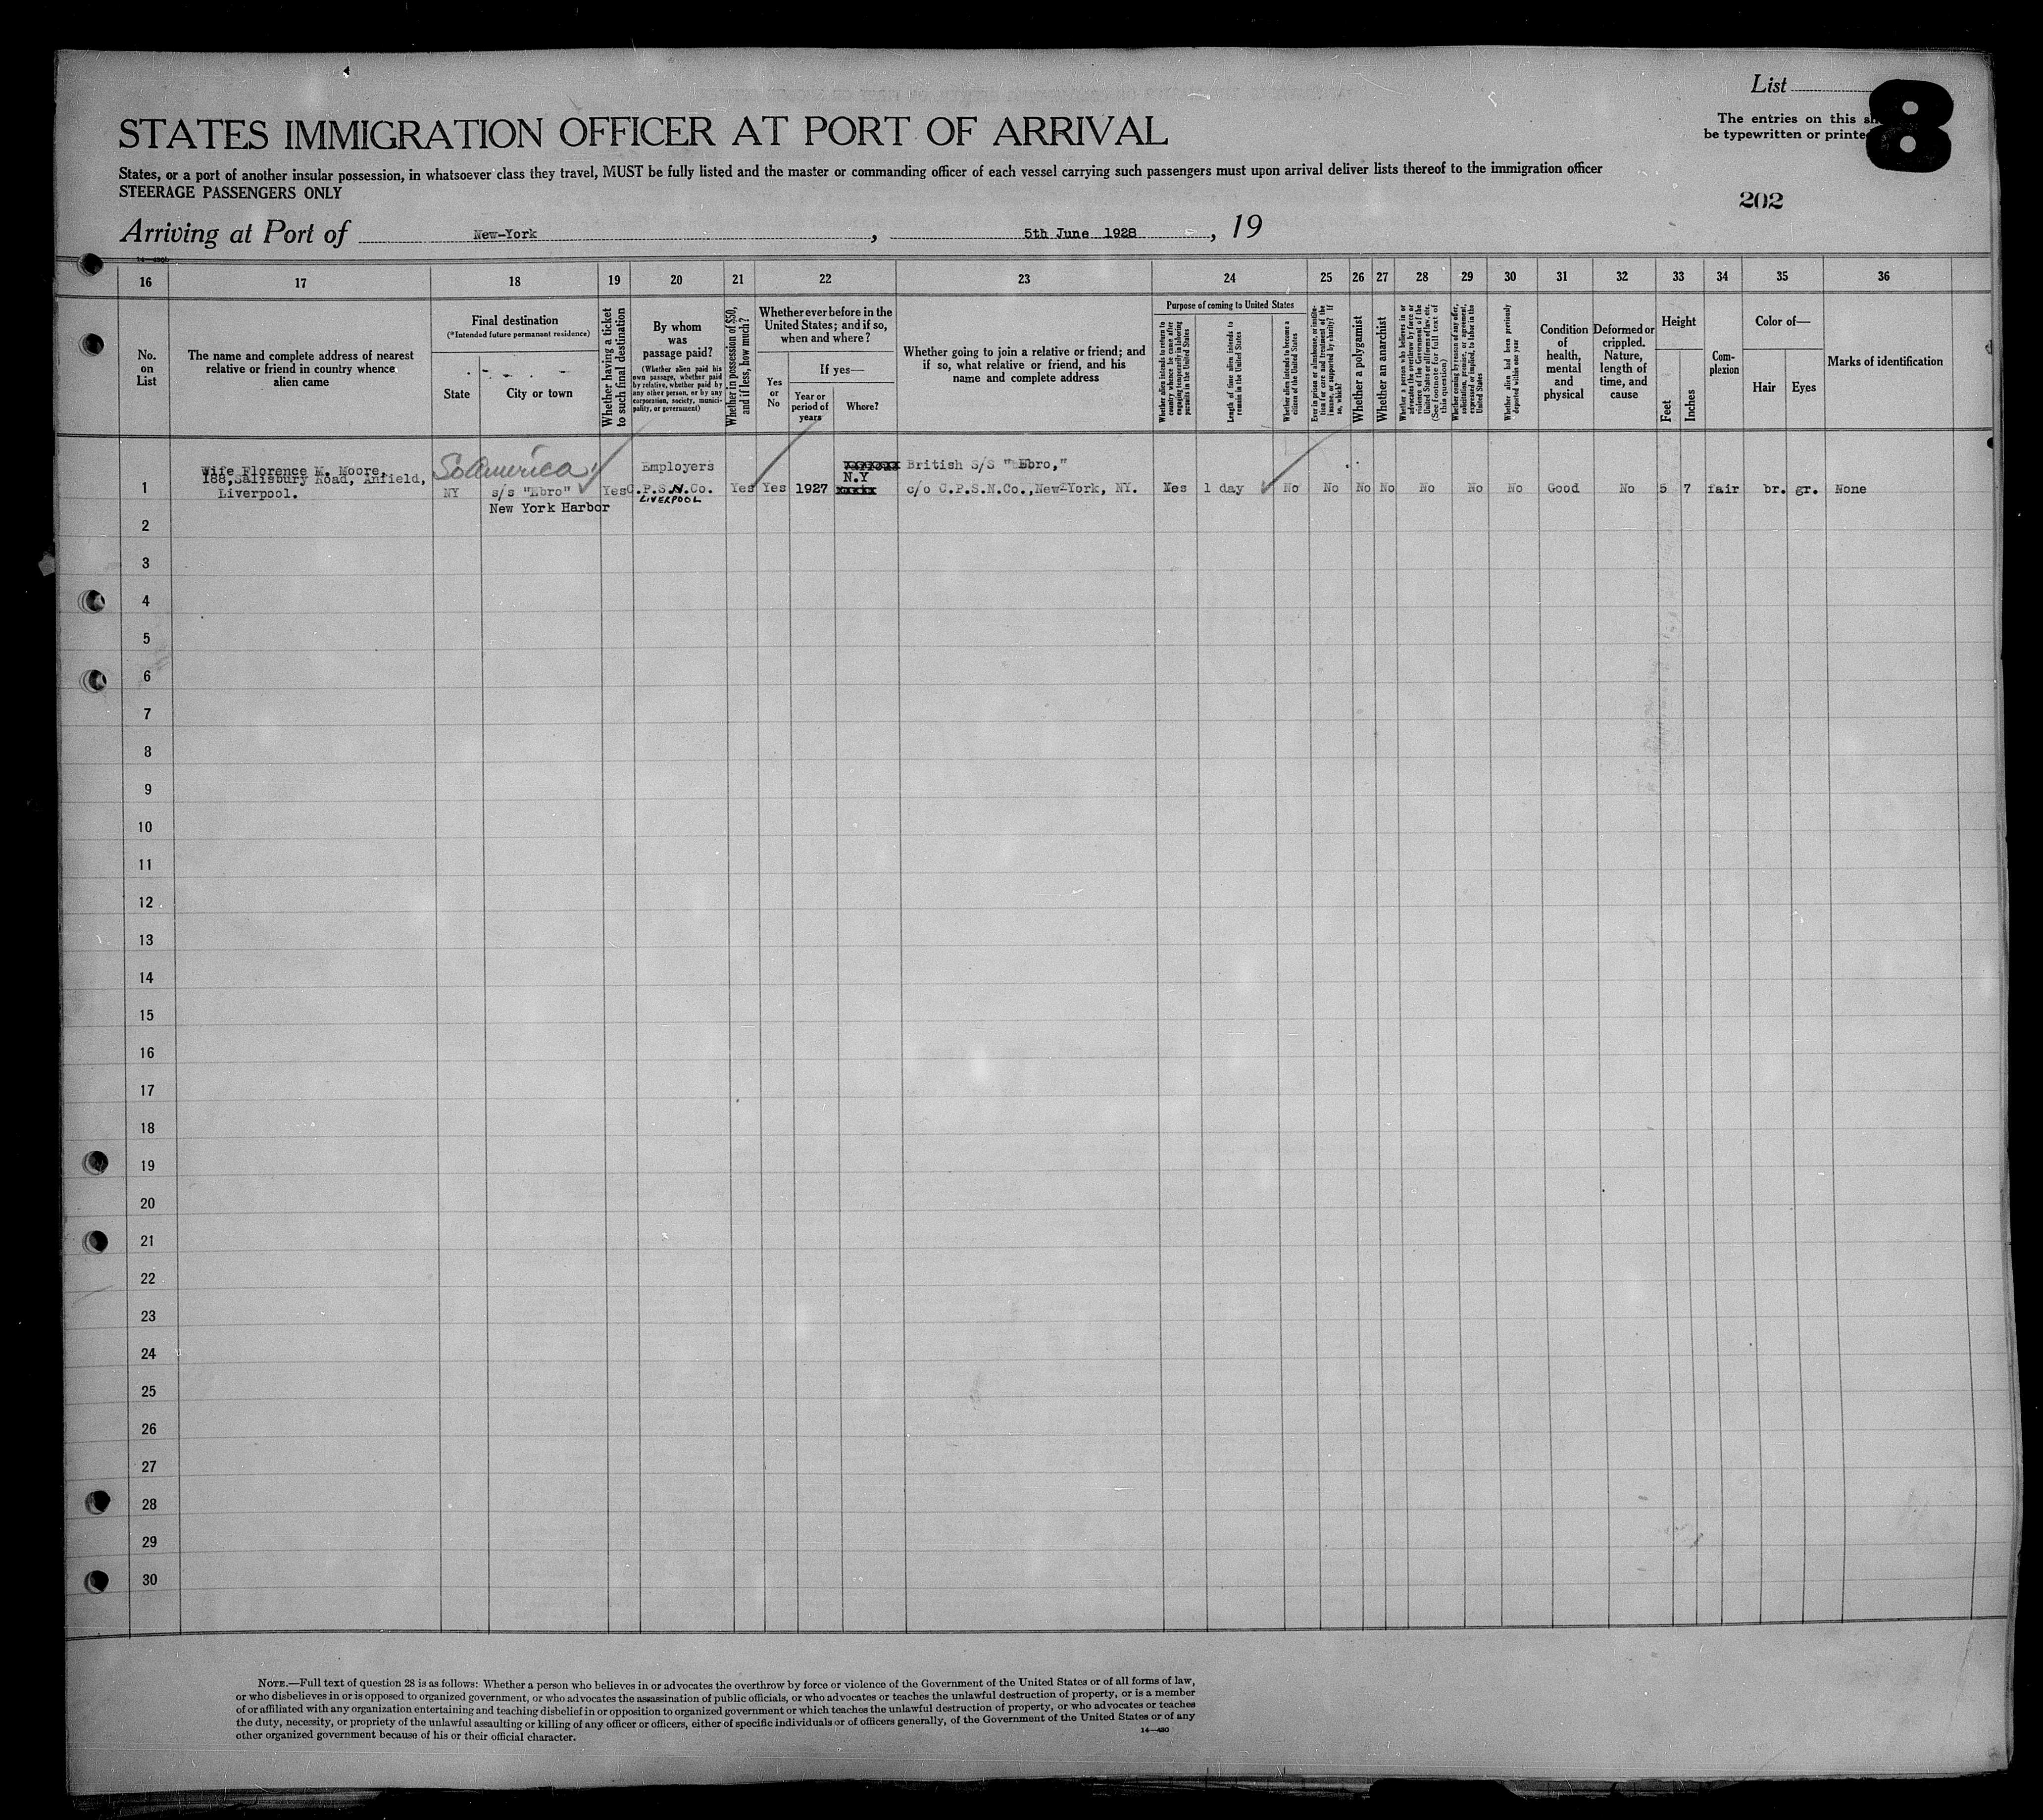 List
8
The entries on this
be typewritten or printe
STATES IMMIGRATION OFFICER AT PORT OF ARRIVAL
States, or a port of another insular possession, in whatsoever class they travel, MUST be fully listed and the master or commanding officer of each vessel carrying such passengers must upon arrival deliver lists thereof to the immigration officer
STEERAGE PASSENGERS ONLY
202
Arriving at Port of New-York, 5th June 1928, 19
16 17 18 19 20 21 22 23 24 25 26 27 28 29 30 31 32 33 34 35 36
No. on List
The name and complete address of nearest relative or friend in country whence alien came
Final destination
(*Intended future permanent residence)
State
City or town
Whether having a ticket to such final destination
By whom was passage paid?
(Whether alien paid his own passage, whether paid by relative, whether paid by any other person, or by any corporation, society, municipality, or government)
Whether in possession of $50, and if less, how much?
Whether ever before in the United States; and if so, when and where?
Yes or No
If yes—
Year or period of years
Where?
Whether going to join a relative or friend; and if so, what relative or friend, and his name and complete address
Purpose of coming to United States
Whether alien intends to return to country whence he came after engaging temporarily in laboring pursuits in the United States
Length of time alien intends to remain in the United States
Whether alien intends to become a citizen of the United States
Ever in prison or almshouse, or institution for care and treatment of the insane, or supported by charity? If so, which?
Whether a polygamist
Whether an anarchist
Whether a person who believes in or advocates the overthrow by force or violence of the Government of the United States or all forms of law, etc. (See footnote for full text of this question)
Whether coming by reason of any offer, solicitation, promise, or agreement, expressed or implied, to labor in the United States
Whether alien had been previously deported within one year
Condition of health, mental and physical
Deformed or crippled. Nature, length of time, and cause
Height
Feet
Inches
Complexion
Color of—
Hair
Eyes
Marks of identification
So America
Wife Florence M. Moore, Employers British S/S "Ebro,"
188, Salisbury Road, Anfield, N.Y
1 Liverpool. NY s/s "Ebro" Yes C.P.S.N.Co. Yes Yes 1927 c/o C.P.S.N.Co., New-York, NY. Yes 1 day No No No No No No No Good No 5 7 fair br. gr. None
LIVERPOOL
New York Harbor
2
3
4
5
6
7
8
9
10
11
12
13
14
15
16
17
18
19
20
21
22
23
24
25
26
27
28
29
30
NOTE.—Full text of question 28 is as follows: Whether a person who believes in or advocates the overthrow by force or violence of the Government of the United States or of all forms of law,
or who disbelieves in or is opposed to organized government, or who advocates the assassination of public officials, or who advocates or teaches the unlawful destruction of property, or is a member
of or affiliated with any organization entertaining and teaching disbelief in or opposition to organized government or which teaches the unlawful destruction of property, or who advocates or teaches
the duty, necessity, or propriety of the unlawful assaulting or killing of any officer or officers, either of specific individuals or of officers generally, of the Government of the United States or of any
other organized government because of his or their official character.
14—430